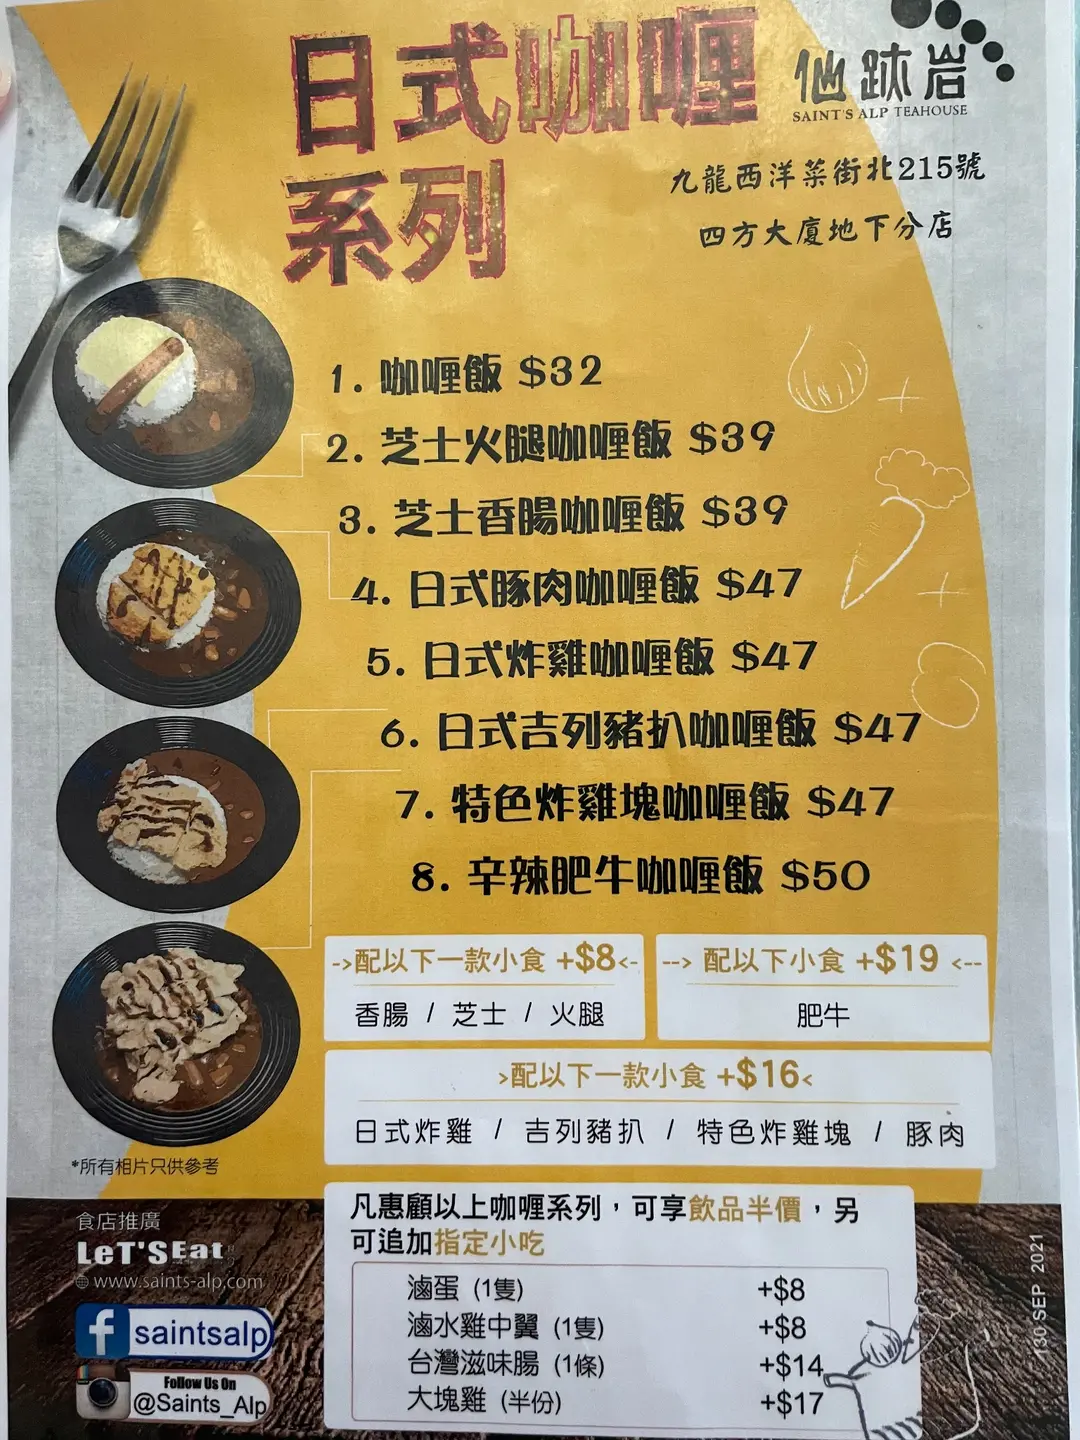 日式咖喱
系列
仙跡岩
SAINT'S ALP TEAHOUSE
九龍西洋菜街北215號
四方大廈地下分店
1. 咖喱飯 $32
2. 芝士火腿咖喱飯 $39
3. 芝士香腸咖喱飯 $39
4. 日式豚肉咖喱飯 $47
5. 日式炸雞咖喱飯 $47
6. 日式吉列豬扒咖喱飯 $47
7. 特色炸雞塊咖喱飯 $47
8. 辛辣肥牛咖喱飯 $50
->配以下一款小食 +$8<-
香腸 / 芝士 / 火腿
--> 配以下小食 +$19 <--
肥牛
>配以下一款小食 +$16<
日式炸雞 / 吉列豬扒 / 特色炸雞塊 / 豚肉
*所有相片只供參考
凡惠顧以上咖喱系列，可享飲品半價，另
可追加指定小吃
滷蛋 (1隻) +$8
滷水雞中翼 (1隻) +$8
台灣滋味腸 (1條) +$14
大塊雞 (半份) +$17
食店推廣
LeT'S Eat
www.saints-alp.com
saintsalp
Follow Us On
@Saints_Alp
30 SEP 2021